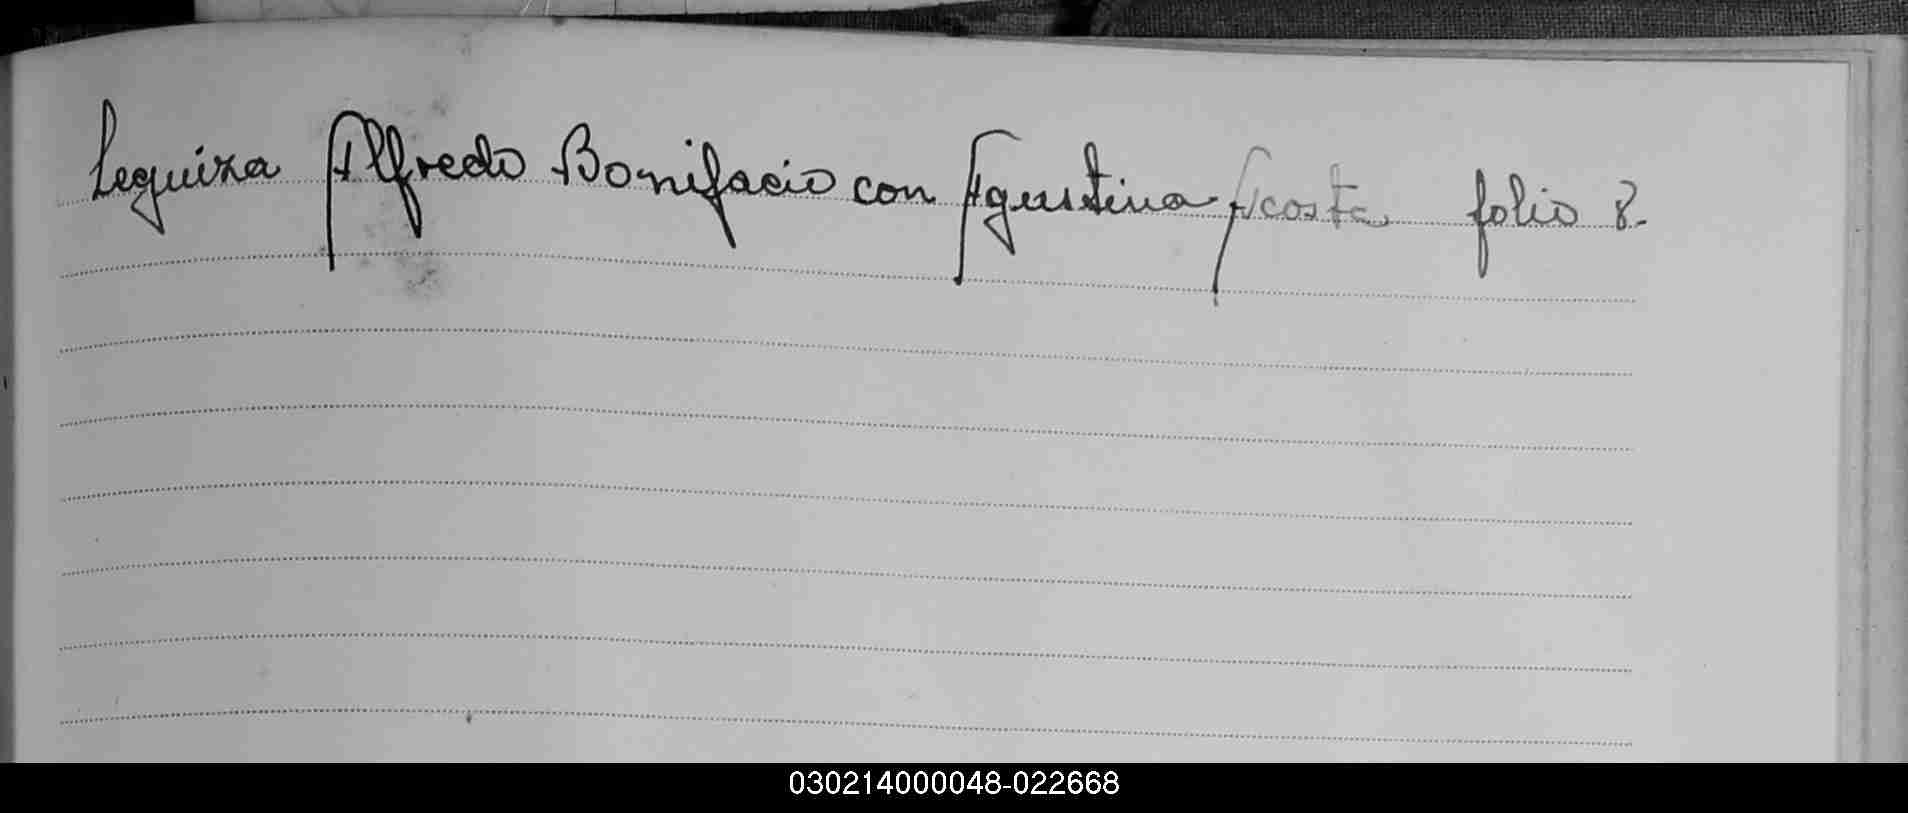 Leguiza Alfredo Bonifacio con Agustina Acosta folio 8.
030214000048-022668